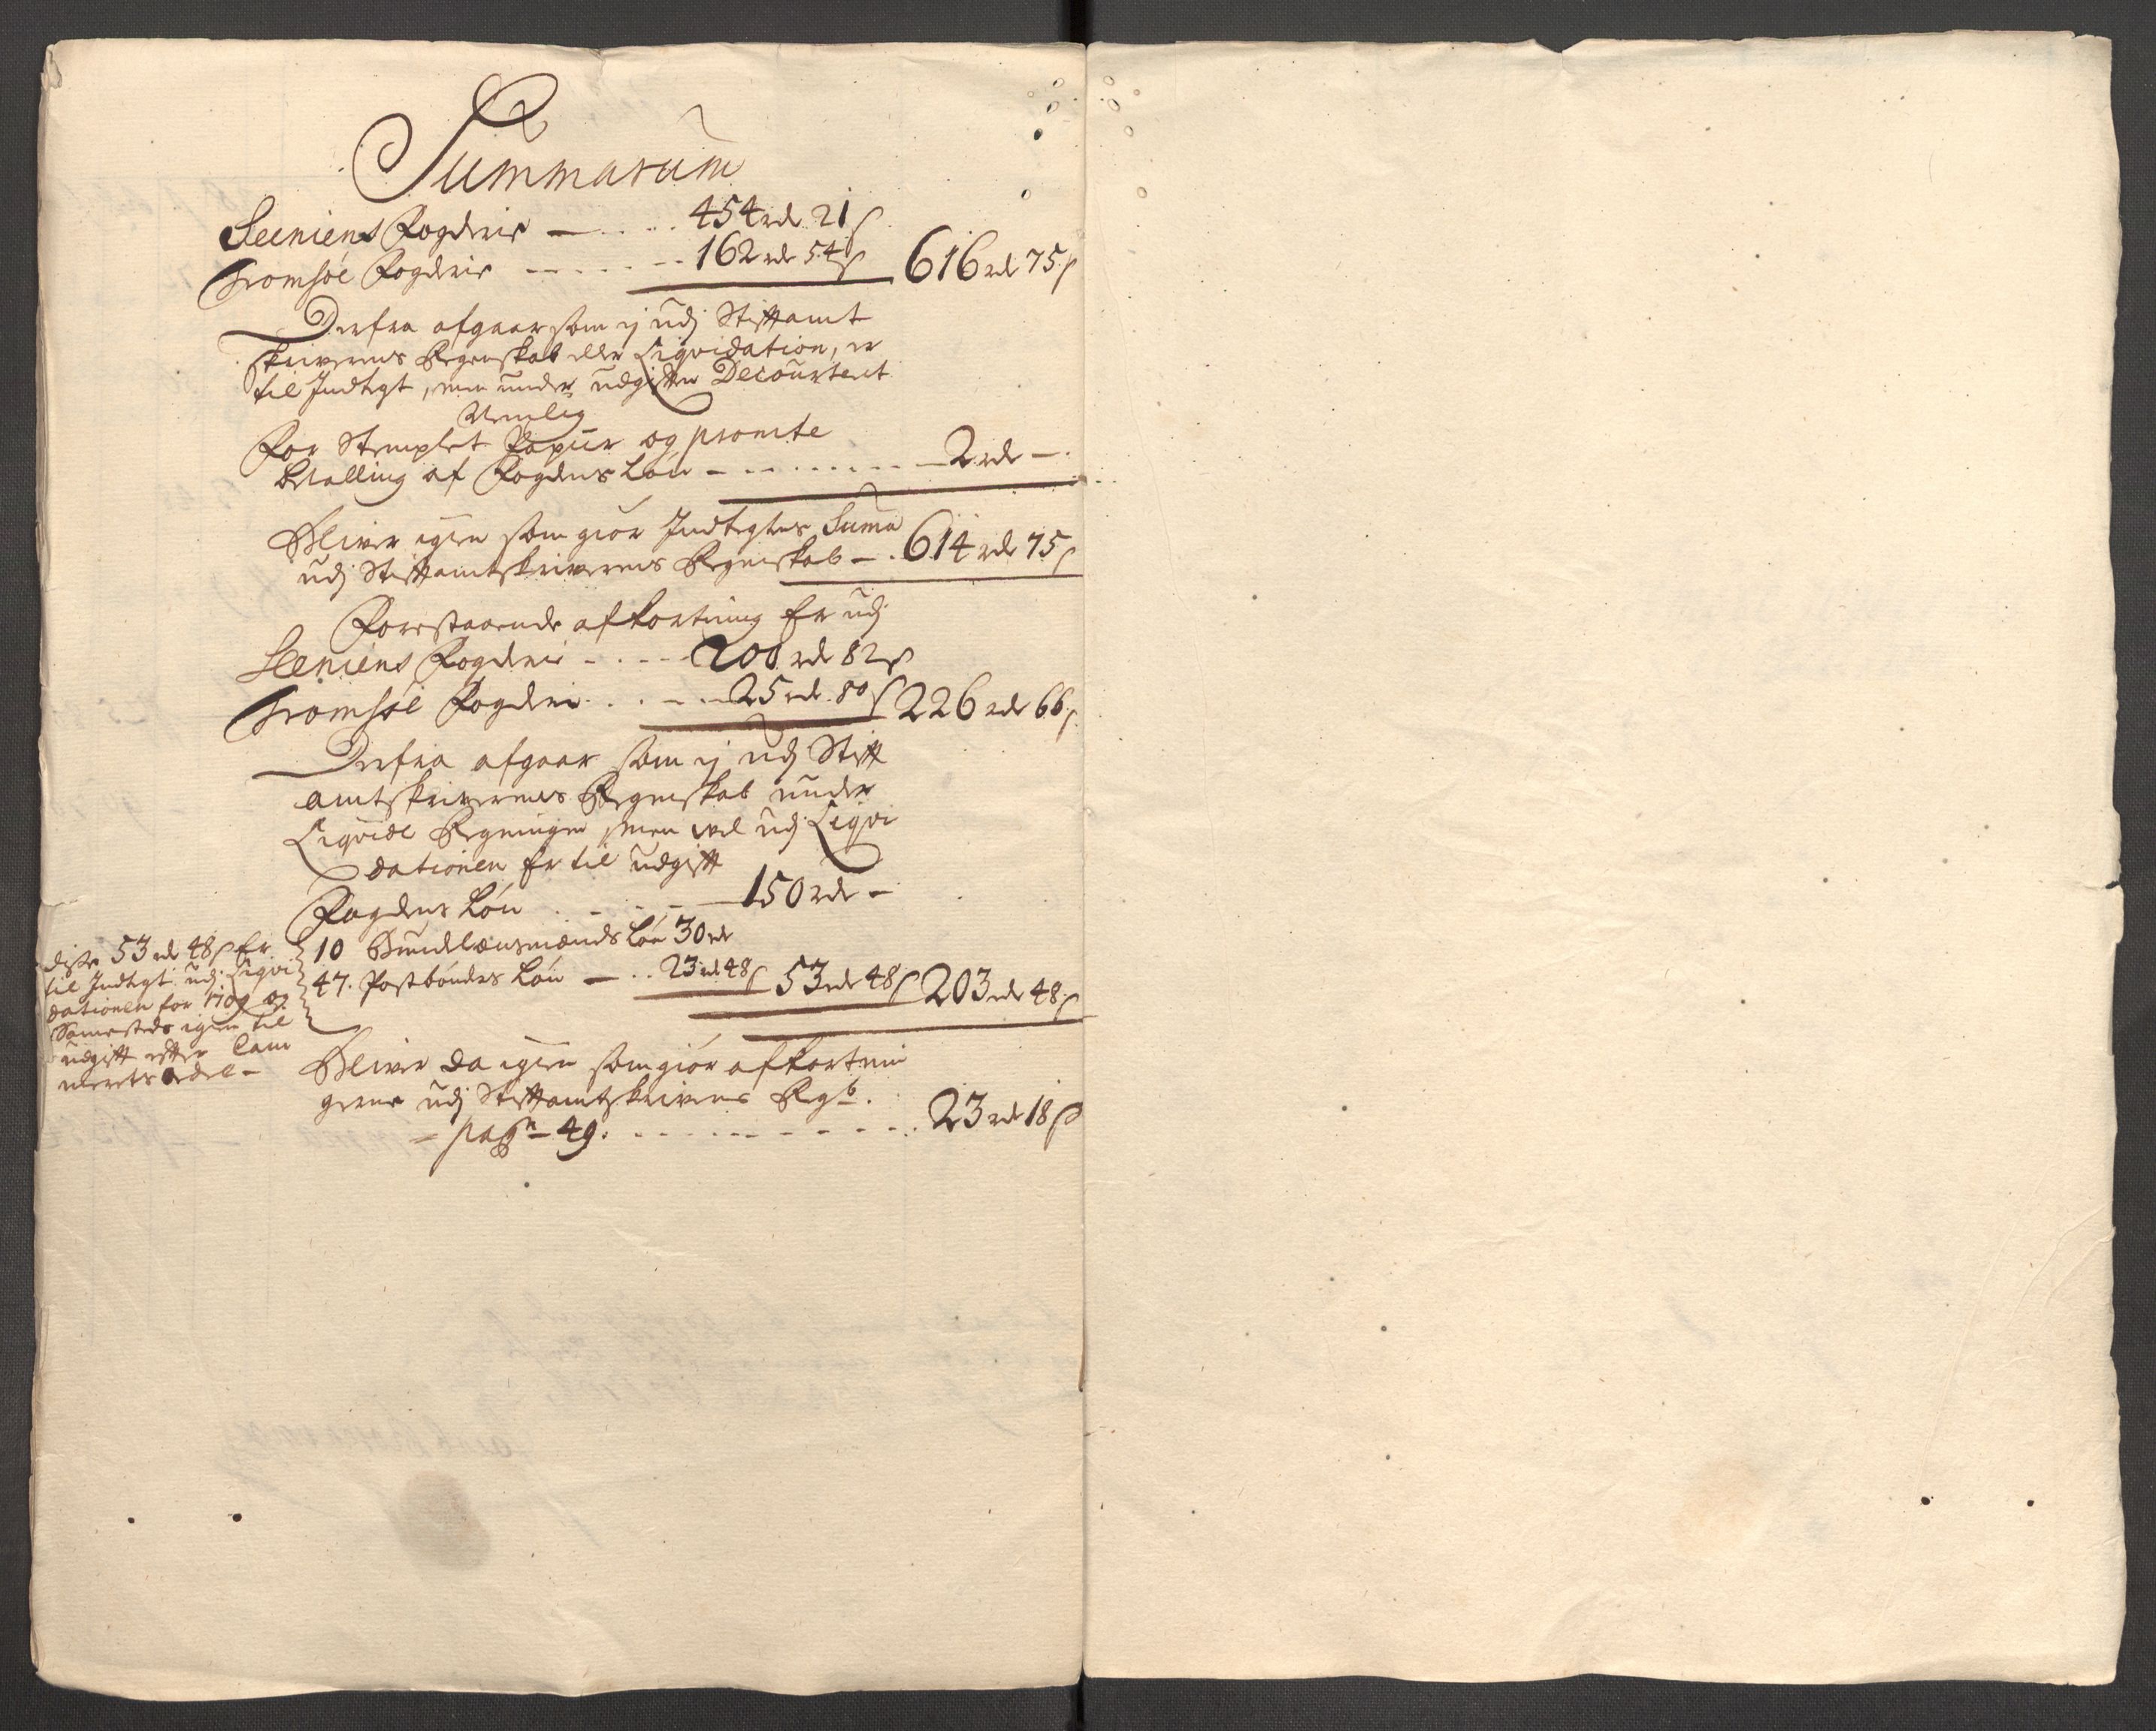 Summarum
Seeniens Fogderie — . . . . 454 rdr 21 ß
Tromsöe Fogderie - - - - - - 162 rdr 54 ß 616 rdr 75 ß
Derfra afgaar som ej udj Stiftamt
skriverens Regenskab eller Liqvidation, er
til Indtegt, men under udgiften Decourterit
Nemlig
For Stemplet Papiir og promte
betalling af Fogdens Lön - - - - - - - - 2 rdr —
Bliver igien som giör Indtegtens Suma
udj Stiftamtskriverens Regenskab — . 614 rdr 75 ß
Forestaaende afkortning Er udj
Seeniens Fogderie - . - - - 200 rdr 82 ß
Tromsöe Fogderie . . . - - - 25 rdr 80 ß 226 rdr 66 ß
Derfra afgaar som ej udj Stift
amtskriverens Regenskab under
Liqvide Regningen, men vel udj Liqvi
dationen Er til udgift
Fogdens Lön . - . - . - — 150 rdr —
10 Bundlænsmænds Lön 30 rdr
47. Postbönders Lön — . . 23 rdr 48 ß 53 rdr 48 ß 203 rdr 48 ß
disse 53 rdr 48 ß Er
til Indtegt udj Liqvi
dationen for 1709 og
Sammesteds igien til
udgift efter Cam
merets
Bliver da igien som giör afkortnin
gerne udj Stiftamtskrivens Rgb.
= pag 49. - - - - - - - - - 23 rdr 18 ß